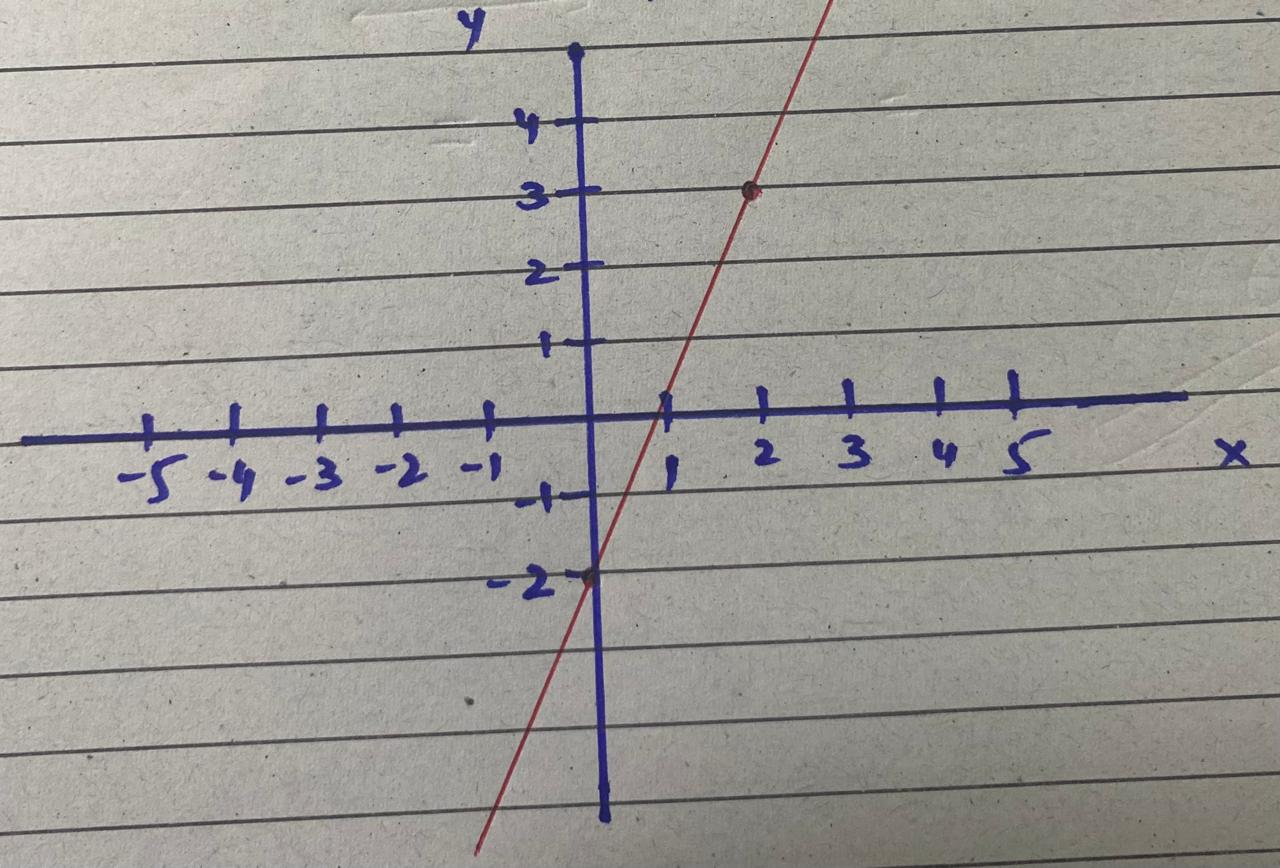 y
4
3
2
1
-5 -4 -3 -2 -1 1 2 3 4 5 x
-1
-2